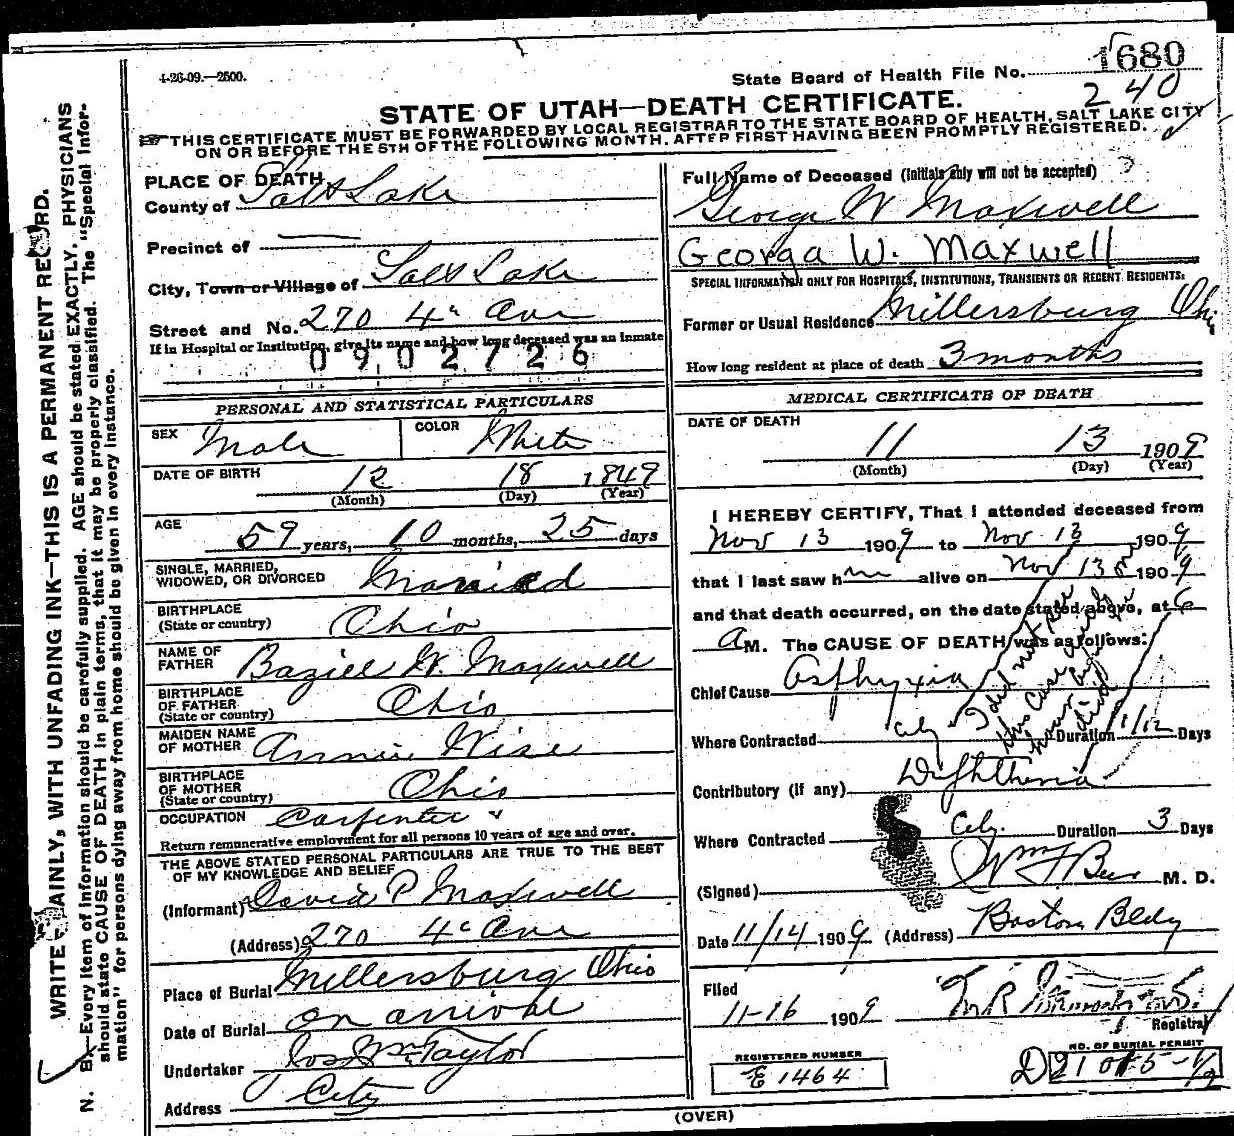 4-26-09.—2500.
State Board of Health File No. 1680
240
STATE OF UTAH—DEATH CERTIFICATE.
THIS CERTIFICATE MUST BE FORWARDED BY LOCAL REGISTRAR TO THE STATE BOARD OF HEALTH, SALT LAKE CITY
ON OR BEFORE THE 5TH OF THE FOLLOWING MONTH, AFTER FIRST HAVING BEEN PROMPTLY REGISTERED.
WRITE PLAINLY, WITH UNFADING INK—THIS IS A PERMANENT RECORD.
N. B.—Every item of information should be carefully supplied. AGE should be stated EXACTLY. PHYSICIANS
should state CAUSE OF DEATH in plain terms, that it may be properly classified. The "Special Infor-
mation" for persons dying away from home should be given in every instance.
PLACE OF DEATH
County of Salt Lake
Precinct of —
City, Town or Village of Salt Lake
Street and No. 270 4th Ave
If in Hospital or Institution, give its name and how long deceased was an inmate
0902726
PERSONAL AND STATISTICAL PARTICULARS
SEX Male COLOR White
DATE OF BIRTH 12 18 1849
(Month) (Day) (Year)
AGE 59 years, 10 months, 25 days
SINGLE, MARRIED,
WIDOWED, OR DIVORCED Married
BIRTHPLACE
(State or country) Ohio
NAME OF
FATHER Baziel W. Maxwell
BIRTHPLACE
OF FATHER
(State or country) Ohio
MAIDEN NAME
OF MOTHER Annie Wise
BIRTHPLACE
OF MOTHER
(State or country) Ohio
OCCUPATION Carpenter
Return remunerative employment for all persons 10 years of age and over.
THE ABOVE STATED PERSONAL PARTICULARS ARE TRUE TO THE BEST
OF MY KNOWLEDGE AND BELIEF
(Informant) David P Maxwell
(Address) 270 4th Ave
Place of Burial Millersburg Ohio
Date of Burial on arrival
Undertaker Jos Wm Taylor
Address City
Full Name of Deceased (Initials only will not be accepted)
George W Maxwell
George W. Maxwell
SPECIAL INFORMATION ONLY FOR HOSPITALS, INSTITUTIONS, TRANSIENTS OR RECENT RESIDENTS:
Former or Usual Residence Millersburg Ohio
How long resident at place of death 3 months
MEDICAL CERTIFICATE OF DEATH
DATE OF DEATH
11 13 1909
(Month) (Day) (Year)
I HEREBY CERTIFY, That I attended deceased from
Nov 13 1909 to Nov 13 1909
that I last saw him alive on Nov 13 1909
and that death occurred, on the date stated above, at 6
A M. The CAUSE OF DEATH was as follows:
Chief Cause Asphyxia
I did not see
this case until
hour before he
died
Where Contracted City Duration 1/12 Days
Contributory (if any) Diphtheria
Where Contracted City. Duration 3 Days
(Signed) M. D.
Date 11/14 1909 (Address) Boston Bldg
Filed
11-16 1909
Registrar
REGISTERED NUMBER
E 1464
NO. OF BURIAL PERMIT
(OVER)